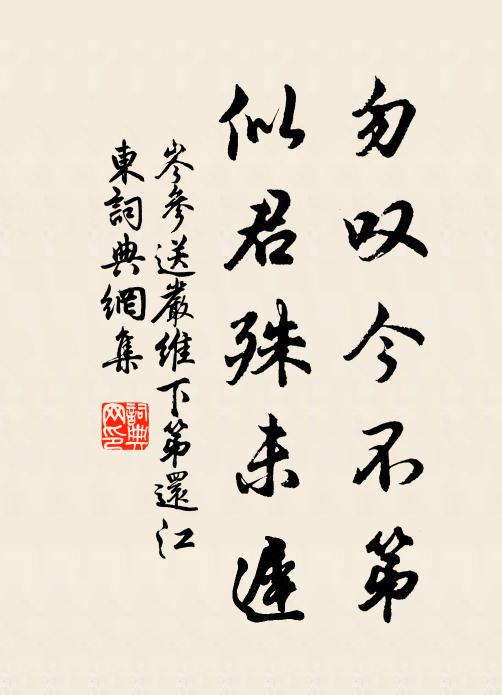 勿叹今不第
似君殊未遲
岑參送嚴維下第還江
東詞典網集
詞典网印